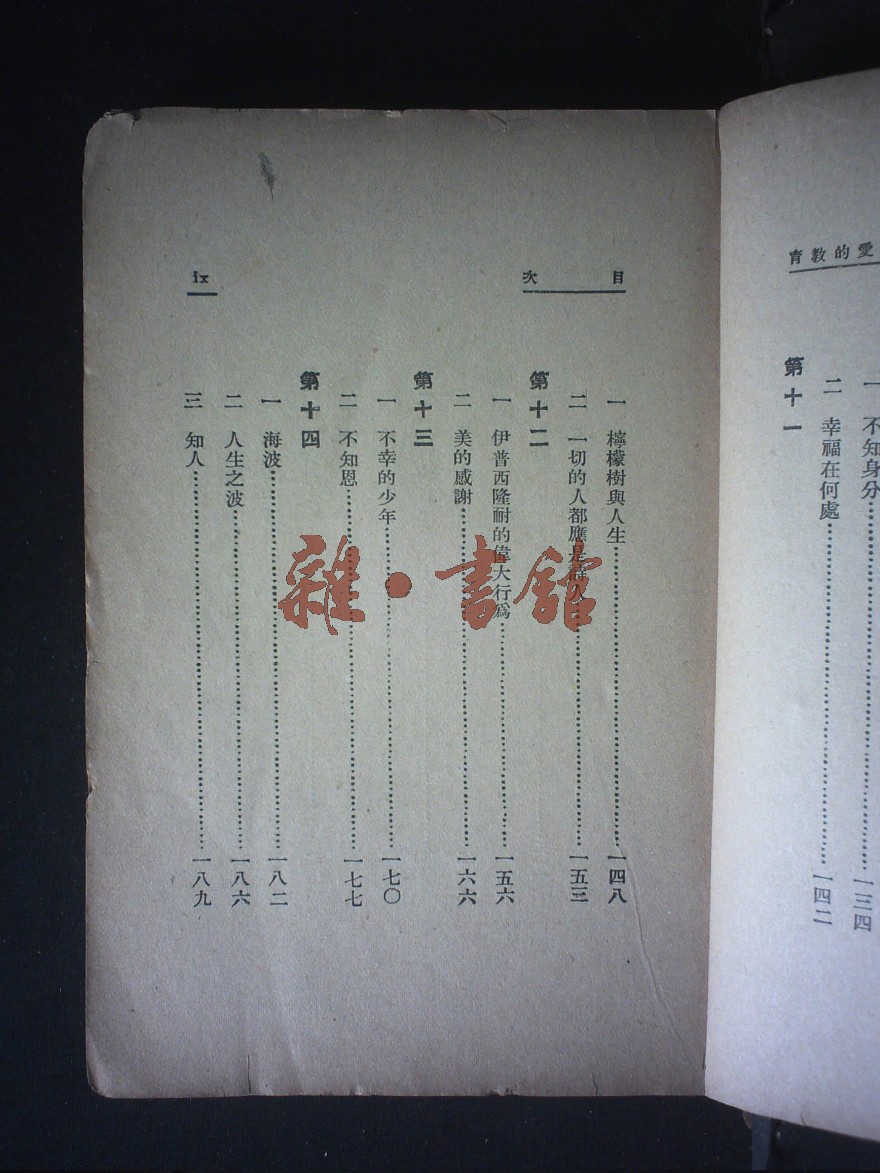 愛的教育
一 不知身分……一三四
二 幸福在何處……一四二
第十一
目次
ix
一 檸檬樹與人生……一四八
二 一切的人都應是詩人……一五三
第十二
一 伊普西隆耐的偉大行爲……一五六
二 美的感謝……一六六
第十三
一 不幸的少年……一七〇
二 不知恩……一七七
第十四
一 海波……一八二
二 人生之波……一八六
三 知人……一八九
雜·書館